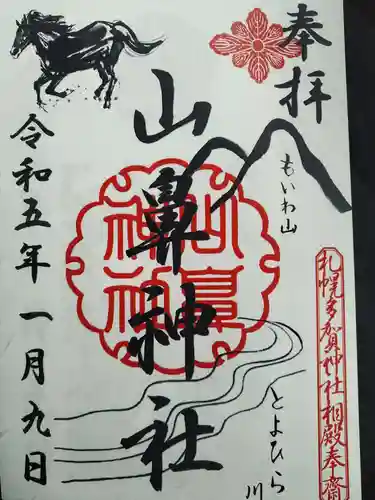 奉拝
もいわ山
札幌多賀神社相殿奉齋
山鼻神社
山鼻
神社
とよひら
川
令和五年一月九日